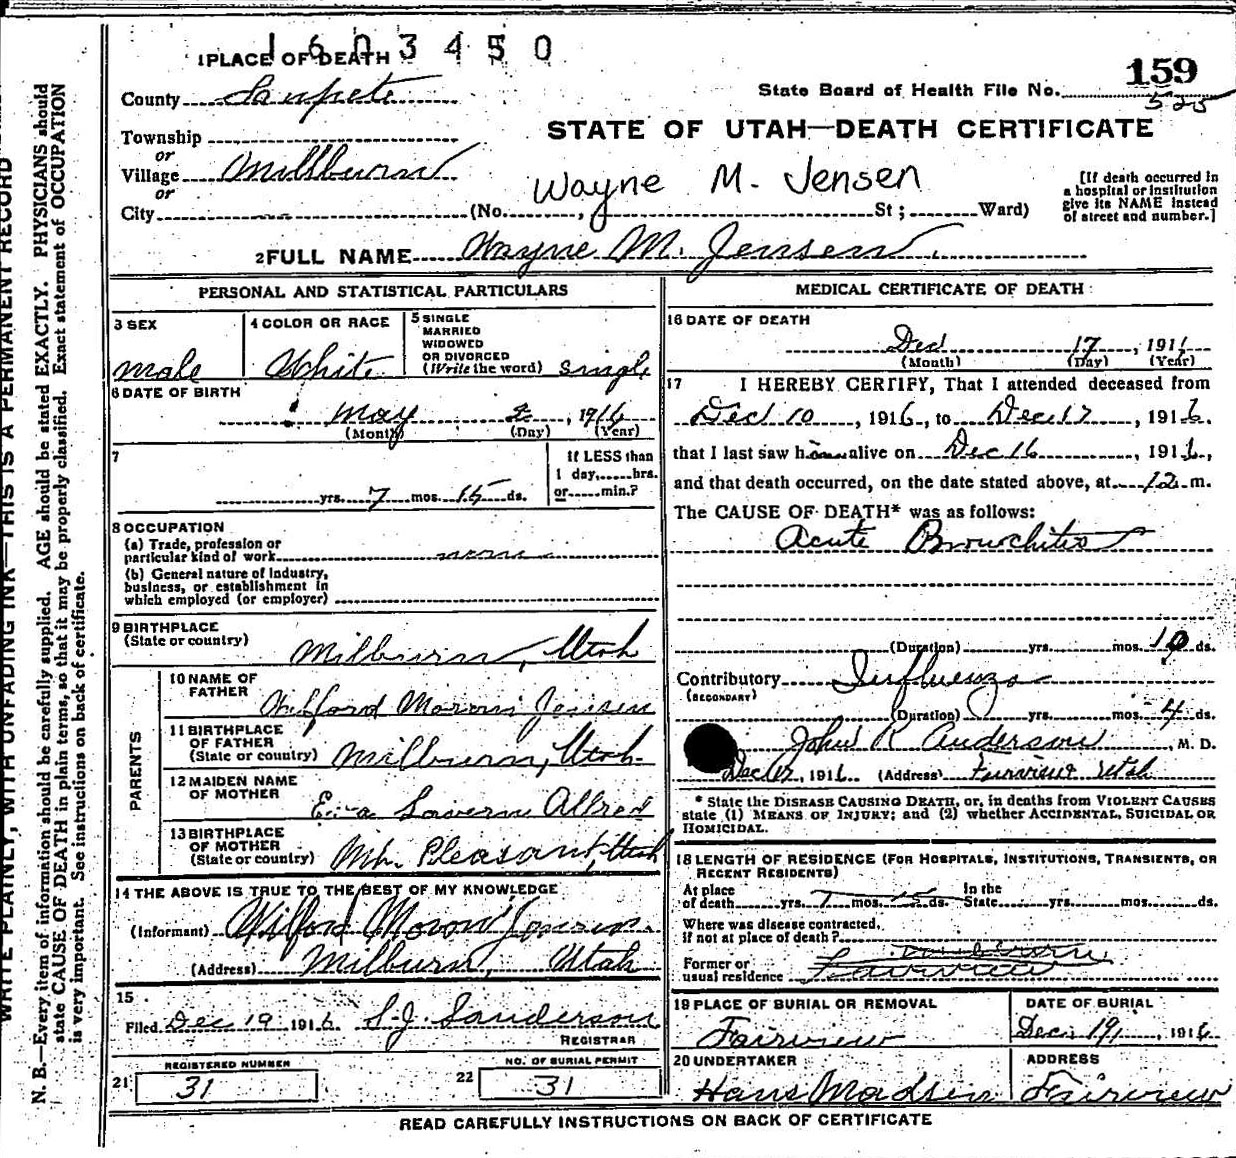 1603450
1 PLACE OF DEATH
159
County Sanpete
State Board of Health File No. 525
Township
STATE OF UTAH—DEATH CERTIFICATE
or
Village Millburn
Wayne M. Jensen
[If death occurred in
a hospital or institution
give its NAME instead
of street and number.]
or
City (No. , St ; Ward)
2 FULL NAME Wayne M. Jensen
PERSONAL AND STATISTICAL PARTICULARS
3 SEX
male
4 COLOR OR RACE
White
5 SINGLE
MARRIED
WIDOWED
OR DIVORCED
(Write the word) single
6 DATE OF BIRTH
May 2, 1916
(Month) (Day) (Year)
7
yrs. 7 mos. 15 ds.
If LESS than
1 day, hrs.
or min.?
8 OCCUPATION
(a) Trade, profession or
particular kind of work none
(b) General nature of industry,
business, or establishment in
which employed (or employer)
9 BIRTHPLACE
(State or country) Milburn, Utah
PARENTS
10 NAME OF
FATHER Wilford Moroni Jensen
11 BIRTHPLACE
OF FATHER
(State or country) Milburn, Utah
12 MAIDEN NAME
OF MOTHER Allred
13 BIRTHPLACE
OF MOTHER
(State or country) Mt. Pleasant, Utah
14 THE ABOVE IS TRUE TO THE BEST OF MY KNOWLEDGE
(Informant) Wilford Moroni Jensen
(Address) Milburn, Utah
15
Filed Dec 19 1916 S.J. Sanderson
REGISTRAR
REGISTERED NUMBER
21 31
NO. OF BURIAL PERMIT
22 31
MEDICAL CERTIFICATE OF DEATH
16 DATE OF DEATH
Dec 17, 1916
(Month) (Day) (Year)
17 I HEREBY CERTIFY, That I attended deceased from
Dec 10, 1916, to Dec 17, 1916.
that I last saw him alive on Dec 16, 1916,
and that death occurred, on the date stated above, at 12 m.
The CAUSE OF DEATH* was as follows:
Acute Bronchitis
(Duration) yrs. mos. 10 ds.
Contributory Influenza
(SECONDARY)
(Duration) yrs. mos. 4 ds.
John R Anderson, M. D.
Dec 17, 1916 (Address) Fairview Utah
* State the DISEASE CAUSING DEATH, or, in deaths from VIOLENT CAUSES
state (1) MEANS OF INJURY; and (2) whether ACCIDENTAL, SUICIDAL OR
HOMICIDAL.
18 LENGTH OF RESIDENCE (FOR HOSPITALS, INSTITUTIONS, TRANSIENTS, OR
RECENT RESIDENTS)
At place In the
of death yrs. 7 mos. 15 ds. State yrs. mos. ds.
Where was disease contracted,
if not at place of death?
Former or
usual residence Fairview
19 PLACE OF BURIAL OR REMOVAL
Fairview
DATE OF BURIAL
Dec. 19, 1916
20 UNDERTAKER
Hans Madsen
ADDRESS
Fairview
READ CAREFULLY INSTRUCTIONS ON BACK OF CERTIFICATE
WRITE PLAINLY, WITH UNFADING INK—THIS IS A PERMANENT RECORD
N. B.—Every item of information should be carefully supplied. AGE should be stated EXACTLY. PHYSICIANS should
state CAUSE OF DEATH in plain terms, so that it may be properly classified. Exact statement of OCCUPATION
is very important. See instructions on back of certificate.